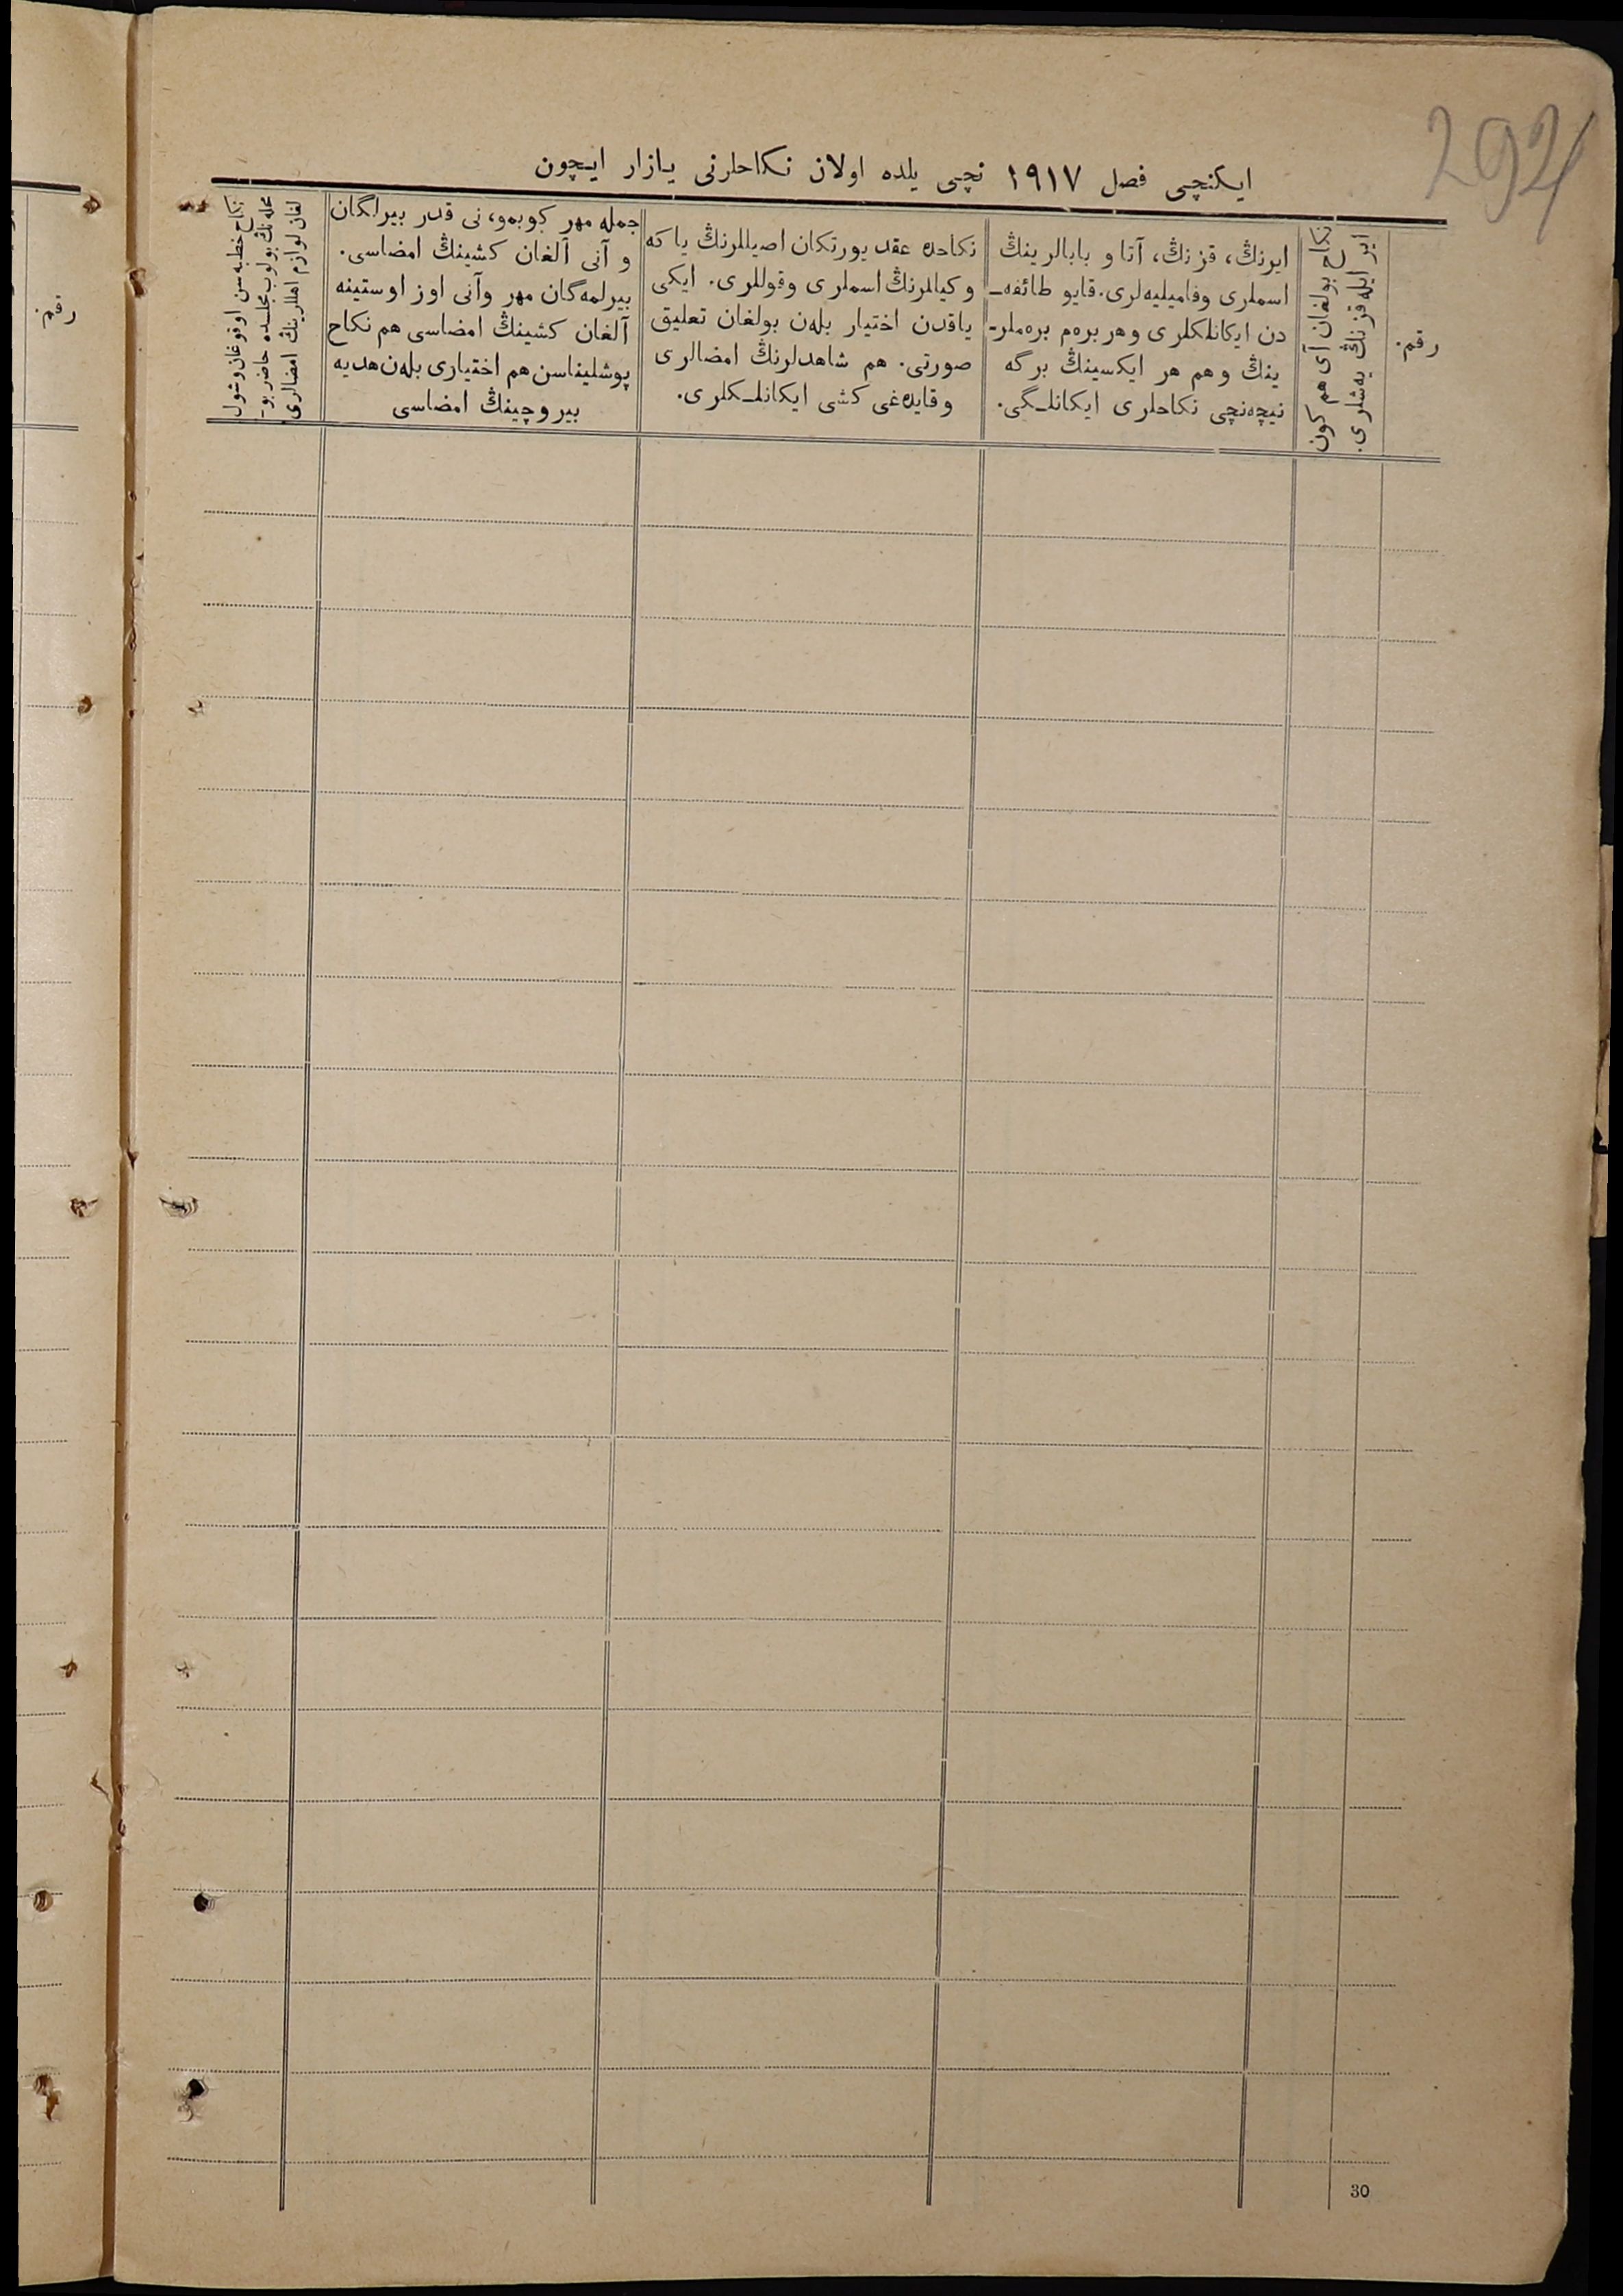 294
ایکنچی فصل ۱۹۱۷ نچی یلده اولان نکاحلرنی یازار ایچون
رقم.
نکاح بولغان آی هم کون
ایر ایله قزنڭ یه‌شلری.
ایرنڭ، قزنڭ، آتا و بابالرینڭ
اسملری وفامیلیه‌لری. قایو طائفه‌ـ
دن ایکانلکلری و هر بره‌م بره‌ملرـ
ینڭ و هم هر ایکسینڭ برگه
نیچه‌نچی نکاحلری ایکانلـگی.
نکاحده عقد یورتکان اصیللرنڭ یا که
و کیللرنڭ اسملری وقوللری. ایکی
یاقدن اختیار بله‌ن بولغان تعلیق
صورتی. هم شاهدلرنڭ امضالری
و قایده‌غی کشی ایکانلـکلری.
جمله مهر کوبمو، نی قدر بیرلگان
و آنی آلغان کشینڭ امضاسی.
بیرلمه‌گان مهر وآنی اوز اوستینه
آلغان کشینڭ امضاسی هم نکاح
پوشلیناسن هم اختیاری بله‌ن هدیه
بیر وچینڭ امضاسی
نکاح خطبه‌سن اوقوغان وشول
محله‌نڭ بولوب مجلسده حاضر بوـ
لغان لوازم اهللرینڭ امضالری
رقم.
30